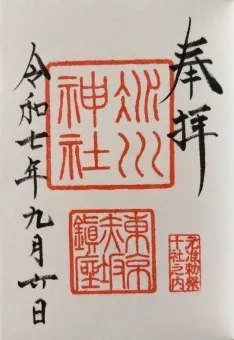 奉拝
氷川神社
東京赤坂鎮座
准勅祭
十社之内
令和七年九月廿日